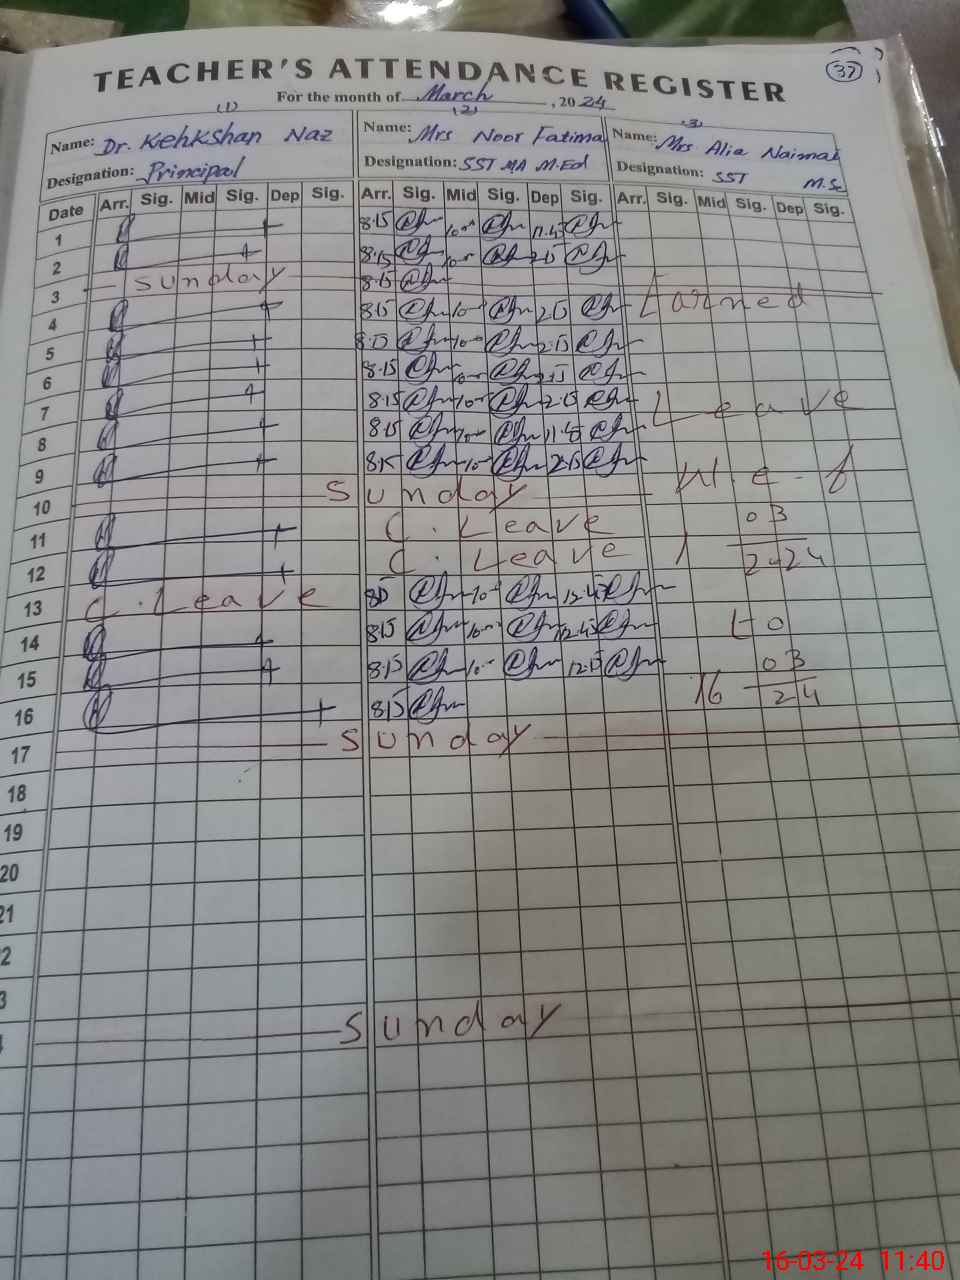 37
TEACHER'S ATTENDANCE REGISTER
For the month of March, 2024
(1) (2) (3)
Name: Dr. Kehkshan Naz Name: Mrs Noor Fatima Name: Mrs Alia Naimat
Designation: Principal Designation: SST MA M.Ed Designation: SST M.Sc
Date Arr. Sig. Mid Sig. Dep Sig. Arr. Sig. Mid Sig. Dep Sig. Arr. Sig. Mid Sig. Dep Sig.
1 8.15 11.45
2 8.15 2.15
3 Sunday 8.15
4 8.15 2.15 Earned
5 8.15 2.15
6 8.15 2.15
7 8.15 2.15 Leave
8 8.15 11.45
9 8.15 2.15 W.e.f
10 Sunday
11 C. Leave 03
12 C. Leave 1 2024
13 C. Leave 815 12.45
14 8.15 12.45 to
15 8.15 12.15 03
16 8.15 16 24
17 Sunday
18
19
20
21
2
3
Sunday
16-03-24 11:40